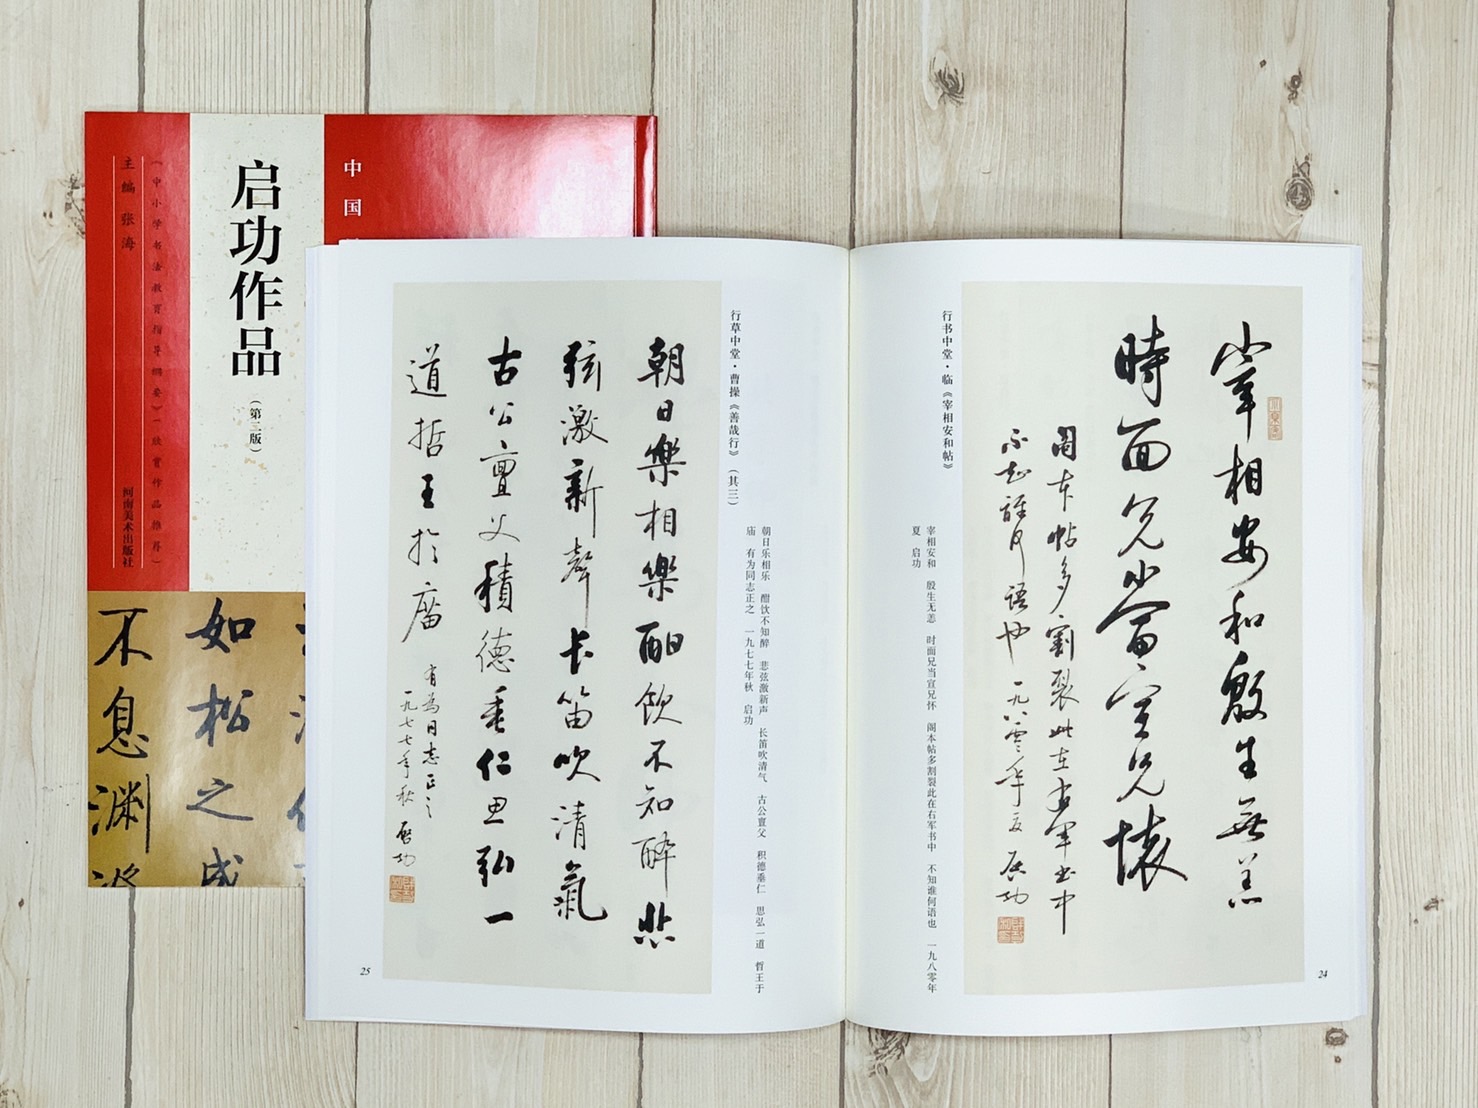 中国
启功作品
(第三版)
(中小学书法教育指导纲要)欣赏作品推荐)
主编 张海
河南美术出版社
如松之盛
不息渊澄
宰相安和殷生無恙
時面兄當宣兄懷
閣本帖多割裂此在右軍书中
不知誰何語也 一九八零年夏 启功
行书中堂·临《宰相安和帖》
宰相安和 殷生无恙 时面兄当宣兄怀 阁本帖多割裂此在右军书中 不知谁何语也 一九八零年
夏 启功
24
行草中堂·曹操《善哉行》(其三)
朝日乐相乐 酣饮不知醉 悲弦激新声 长笛吹清气 古公亶父 积德垂仁 思弘一道 哲王于
庙 有为同志正之 一九七七年秋 启功
朝日樂相樂酣飲不知醉悲
弦激新聲长笛吹清氣
古公亶父積德垂仁思弘一
道哲王於廟
有為同志正之
一九七七年秋 启功
25